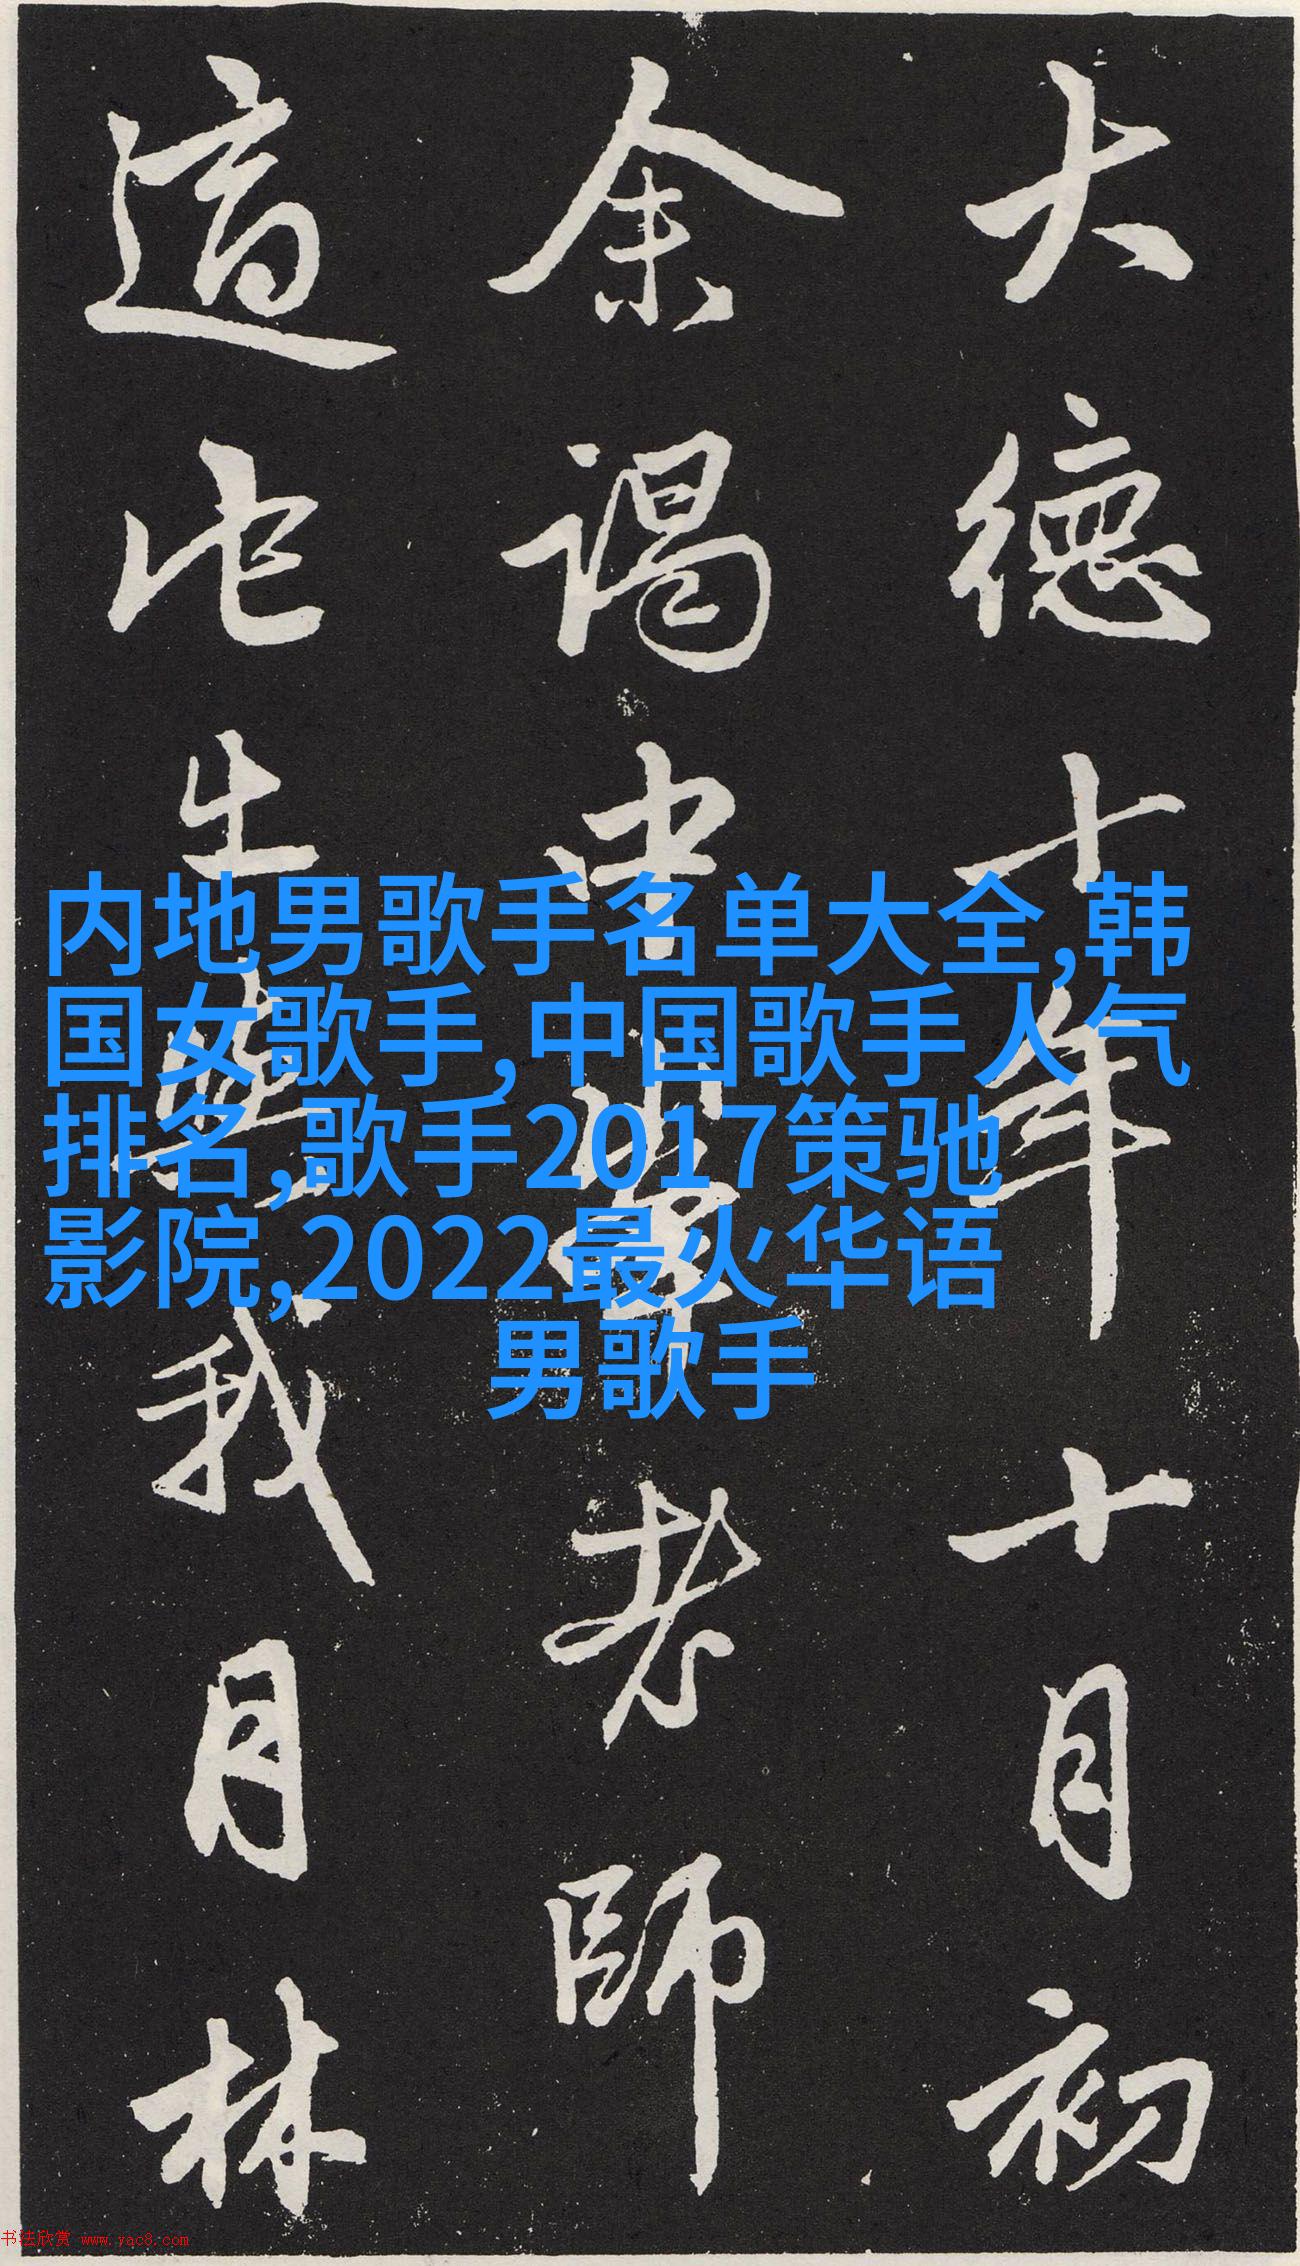 大德十年十月初
余謁中峯老師
適此出與我月林
内地男歌手名单大全,韩
国女歌手,中国歌手人气
排名,歌手2017策驰
影院,2022最火华语
男歌手
书法欣赏 www.yac8.com